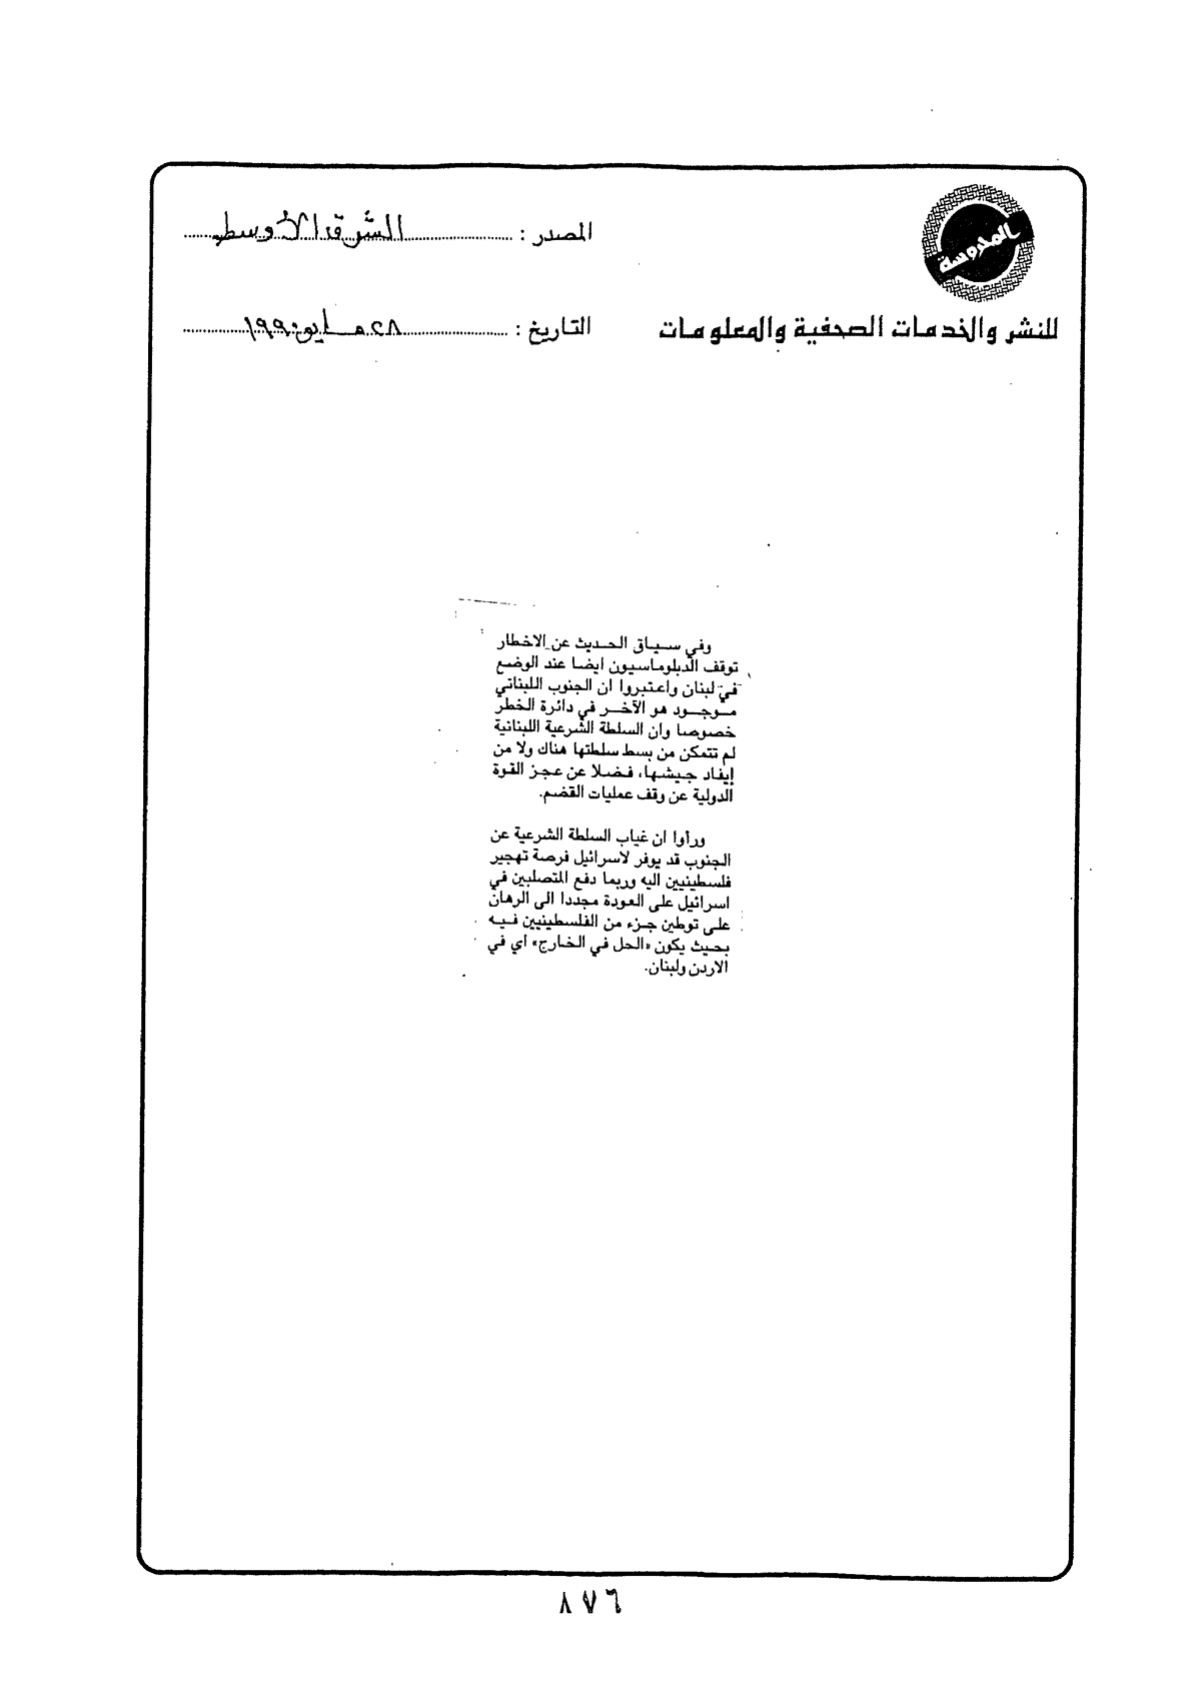 المدروسة
للنشر والخدمات الصحفية والمعلومات
المصدر : الشرق الأوسط
التاريخ : ٢٨ مايو ١٩٩٠
وفي سياق الحديث عن الاخطار
توقف الدبلوماسيون ايضا عند الوضع
في لبنان واعتبروا ان الجنوب اللبناني
موجود هو الآخر في دائرة الخطر
خصوصا وان السلطة الشرعية اللبنانية
لم تتمكن من بسط سلطتها هناك ولا من
إيفاد جيشها، فضلا عن عجز القوة
الدولية عن وقف عمليات القضم.
ورأوا ان غياب السلطة الشرعية عن
الجنوب قد يوفر لاسرائيل فرصة تهجير
فلسطينيين اليه وربما دفع المتصلبين في
اسرائيل على العودة مجددا الى الرهان
على توطين جزء من الفلسطينيين فيه
بحيث يكون «الحل في الخارج» اي في
الاردن ولبنان.
٨٧٦